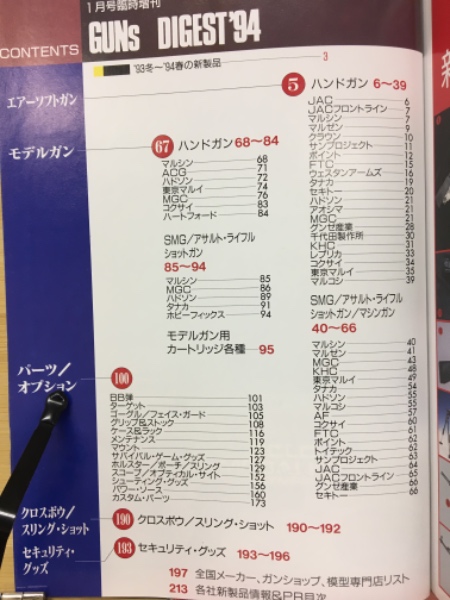 1月号臨時増刊
CONTENTS
GUNs DIGEST'94
'93冬〜'94春の新製品 3
エアーソフトガン
5 ハンドガン 6〜39
JAC 6
JACフロントライン 7
マルシン 7
マルゼン 9
クラウン 10
サンプロジェクト 11
ポイント 12
FTC 15
ウェスタンアームス 16
タナカ 19
セキトー 20
ハドソン 21
アオシマ 21
MGC 21
グンゼ産業 28
千代田製作所 30
KHC 31
レプリカ 33
コクサイ 34
東京マルイ 35
マルコシ 39
SMG/アサルト・ライフル
ショットガン/マシンガン
40〜66
マルシン 40
マルゼン 41
MGC 43
KHC 48
東京マルイ 49
タナカ 54
ハドソン 55
マルコシ 55
AF 57
コクサイ 60
FTC 61
ポイント 62
トイテック 62
サンプロジェクト 63
JAC 64
JACフロントライン 65
グンゼ産業 66
セキトー 66
モデルガン
67 ハンドガン 68〜84
マルシン 68
ACG 71
ハドソン 72
東京マルイ 74
MGC 76
コクサイ 83
ハートフォード 84
SMG/アサルト・ライフル
ショットガン
85〜94
マルシン 85
MGC 86
ハドソン 89
タナカ 91
ホビーフィックス 94
モデルガン用
カートリッジ各種 95
パーツ/
オプション
100
BB弾 101
ターゲット 103
ゴーグル/フェイス・ガード 105
グリップ&ストック 108
ケース&ラック 116
メンテナンス 119
マウント 123
サバイバル・ゲーム・グッズ 127
ホルスター/ポーチ/スリング 129
スコープ/オプティカル・サイト 152
シューティング・グッズ 156
パワー・ソース 160
カスタム・パーツ 173
クロスボウ/
スリング・ショット
190 クロスボウ/スリング・ショット 190〜192
セキュリティ・
グッズ
193 セキュリティ・グッズ 193〜196
197 全国メーカー、ガンショップ、模型専門店リスト
213 各社新製品情報&PR目次